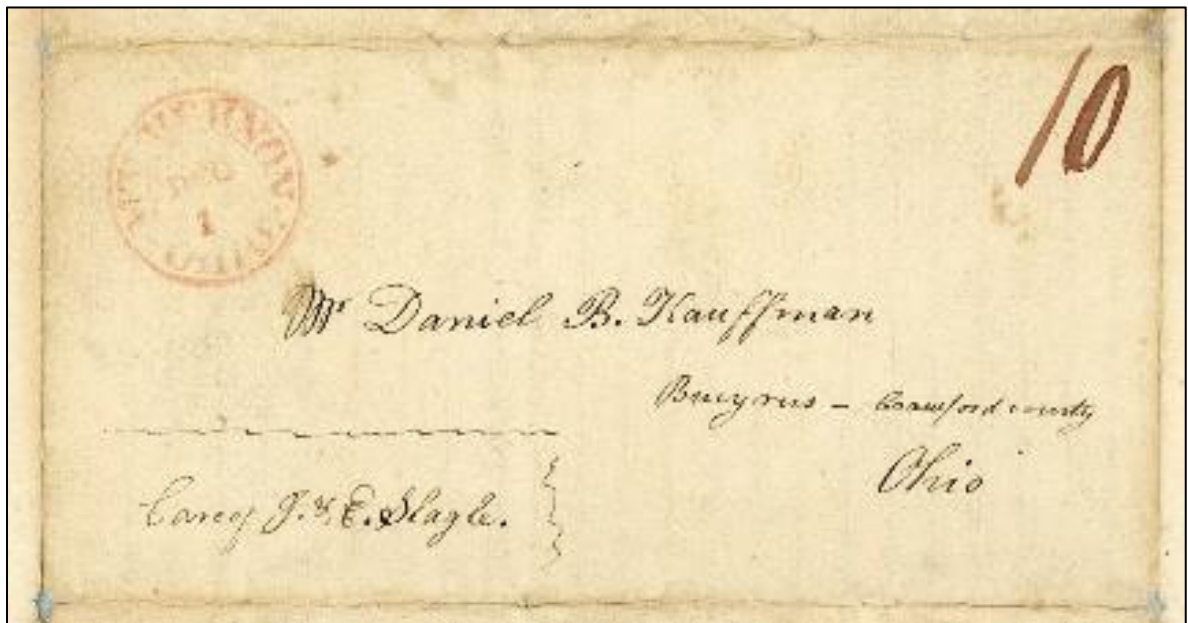 10
MT. VERNON
DEC
1
OHIO
Mr Daniel B. Kauffman
Bucyrus – Crawford county
Ohio
Care of J. & E. Slagle.